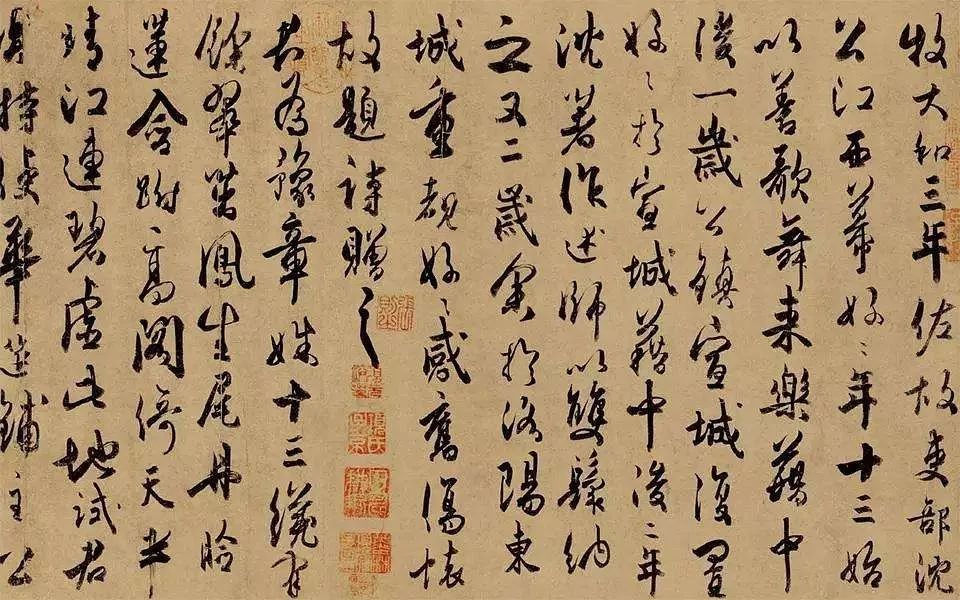 牧大和三年佐故吏部沈
公江西幕好〻年十三始
以善歌舞来樂籍中
後一歲公鎮宣城復置
好〻於宣城籍中後二年
沈著作述師以雙鬟納
之又二歲余於洛陽東
城重覩好〻感舊傷懷
故題詩贈之
君為豫章姝十三纔有
餘翠茁鳳生尾丹臉
蓮含跗高閣倚天半
晴江連碧虛此地試君
唱特使華筵鋪主公